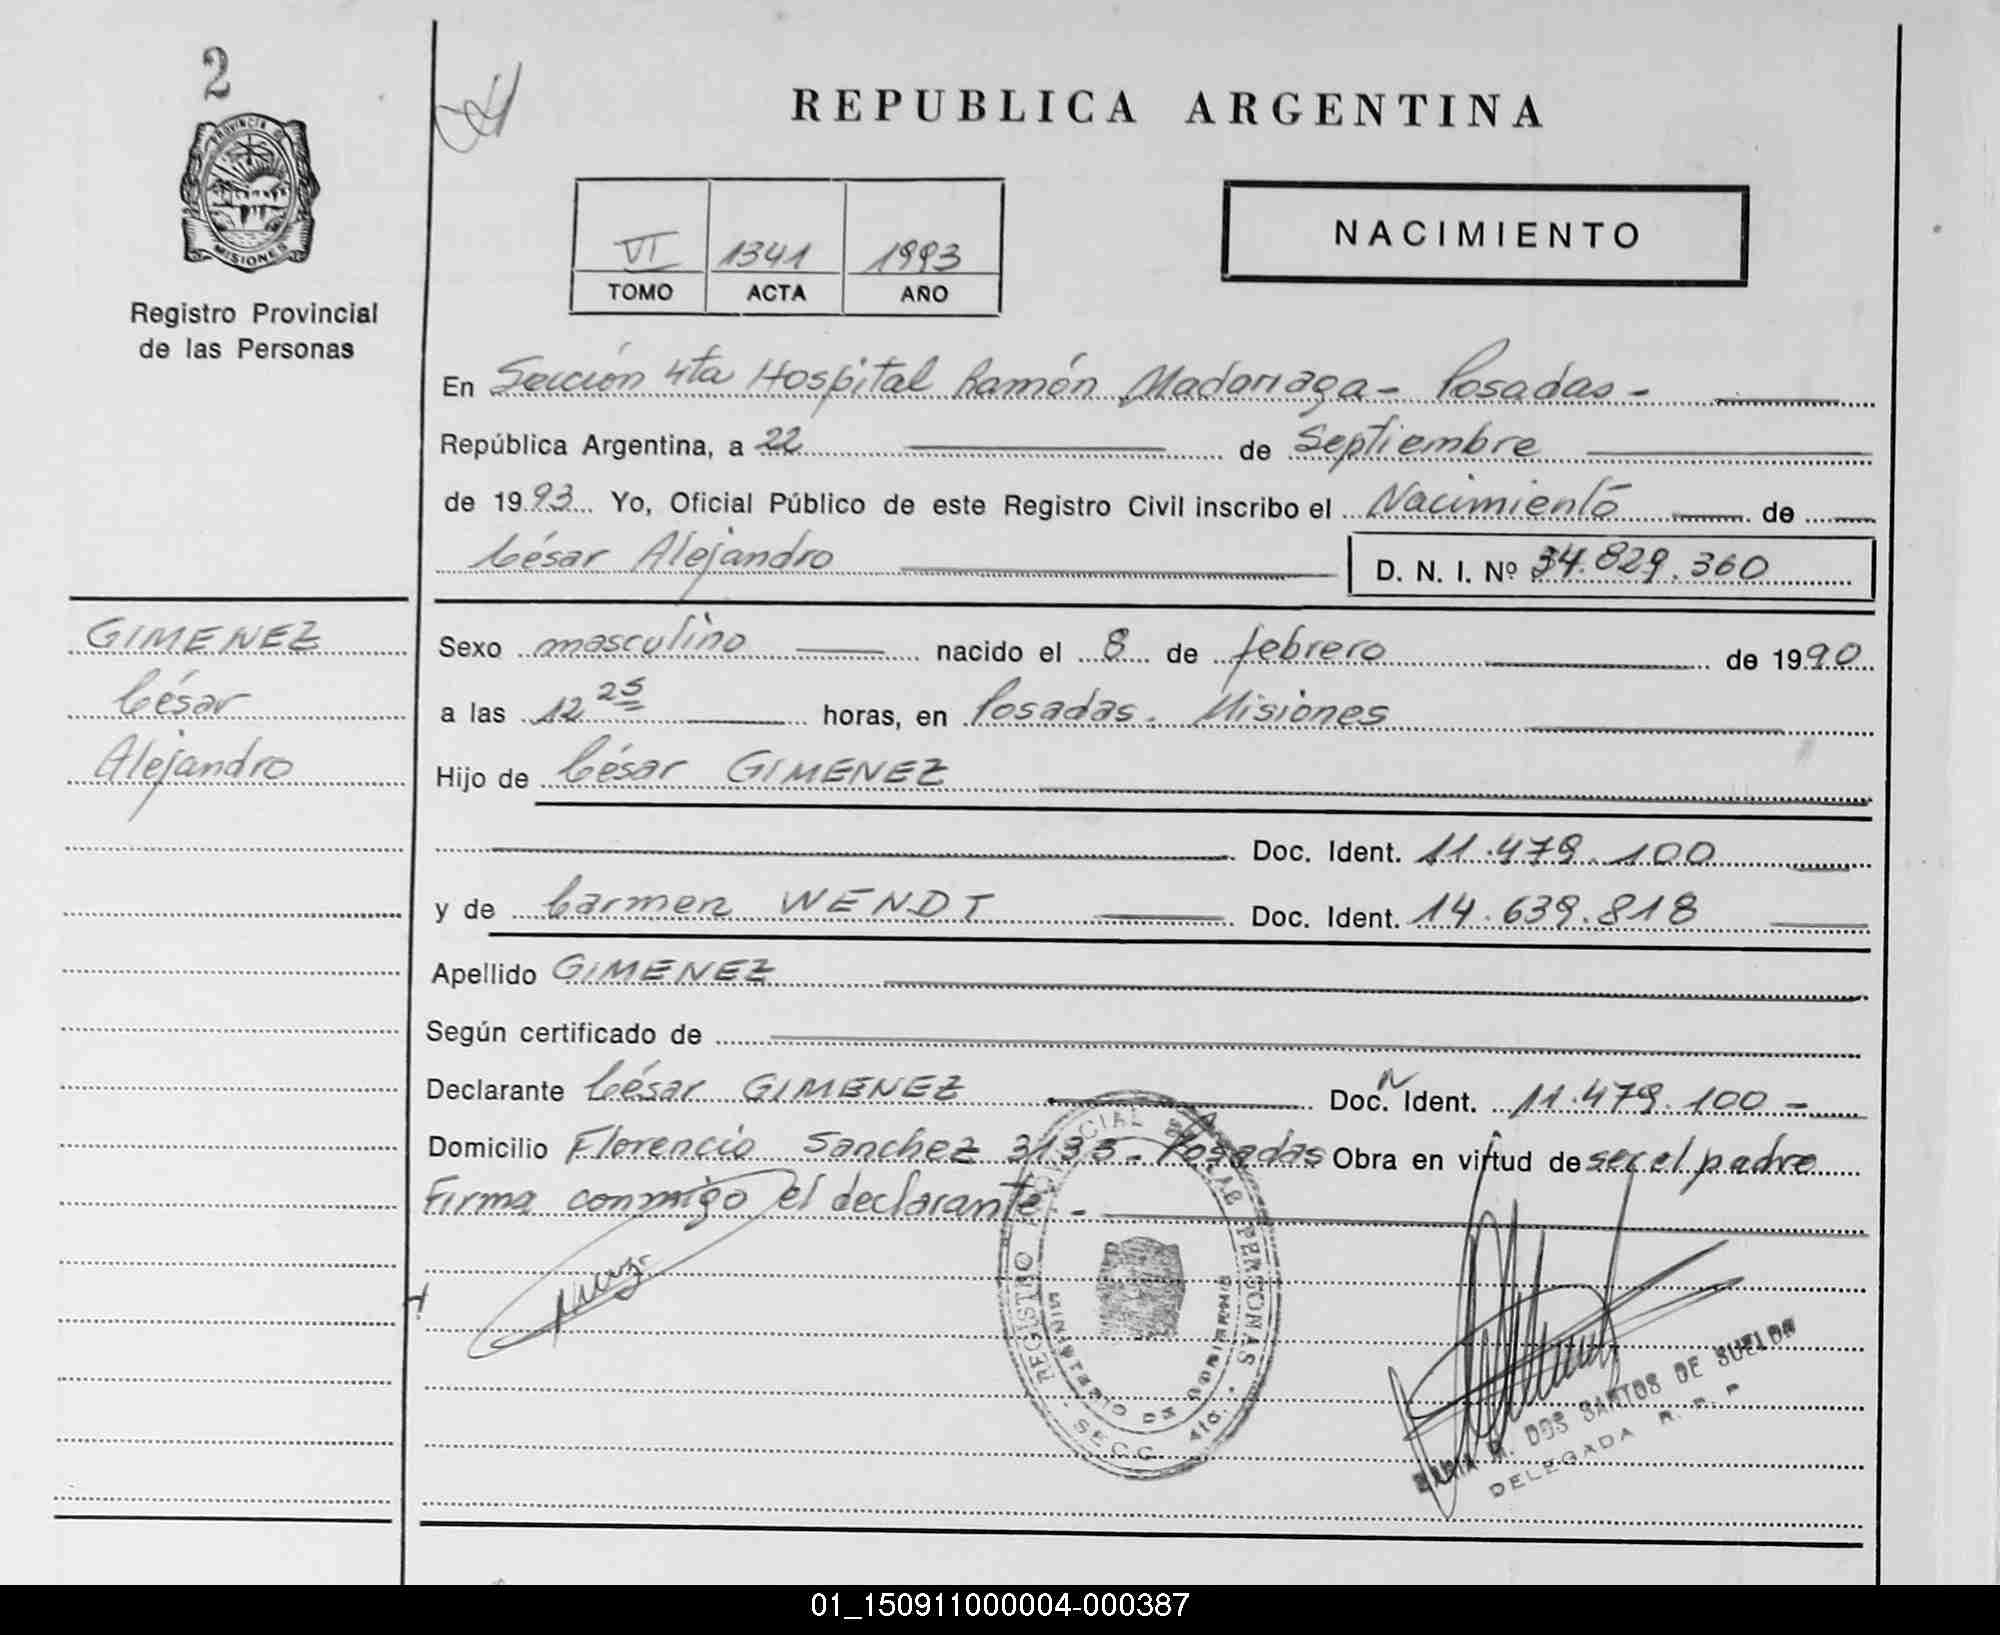 2
PROVINCIA DE
MISIONES
Registro Provincial
de las Personas
REPUBLICA ARGENTINA
VI 1341 1993
TOMO ACTA AÑO
NACIMIENTO
En Sección 4ta Hospital Ramón Madariaga - Posadas -
República Argentina, a 22 de Septiembre
de 1993 Yo, Oficial Público de este Registro Civil inscribo el Nacimiento de
César Alejandro D. N. I. Nº 34.829.360
GIMENEZ
César
Alejandro
Sexo masculino nacido el 8 de febrero de 1990
a las 12 25 horas, en Posadas. Misiones
Hijo de César GIMENEZ
Doc. Ident. 11.479.100
y de Carmen WENDT Doc. Ident. 14.639.818
Apellido GIMENEZ
Según certificado de
Declarante César GIMENEZ Doc. Ident. 11.479.100 -
Domicilio Florencio Sanchez 3135 - Posadas Obra en virtud de ser el padre
Firma conmigo el declarante. -
REGISTRO PROVINCIAL DE LAS PERSONAS
MINISTERIO DE GOBIERNO
- SECC. 4ta. -
MARIA M. DOS SANTOS DE SUELDO
DELEGADA R. P. P.
01_150911000004-000387